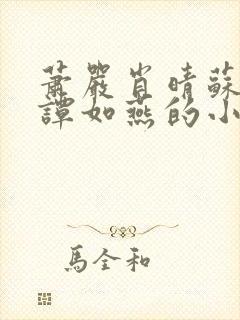 蕭嚴肖晴蘇
譚如燕的小
馬全和